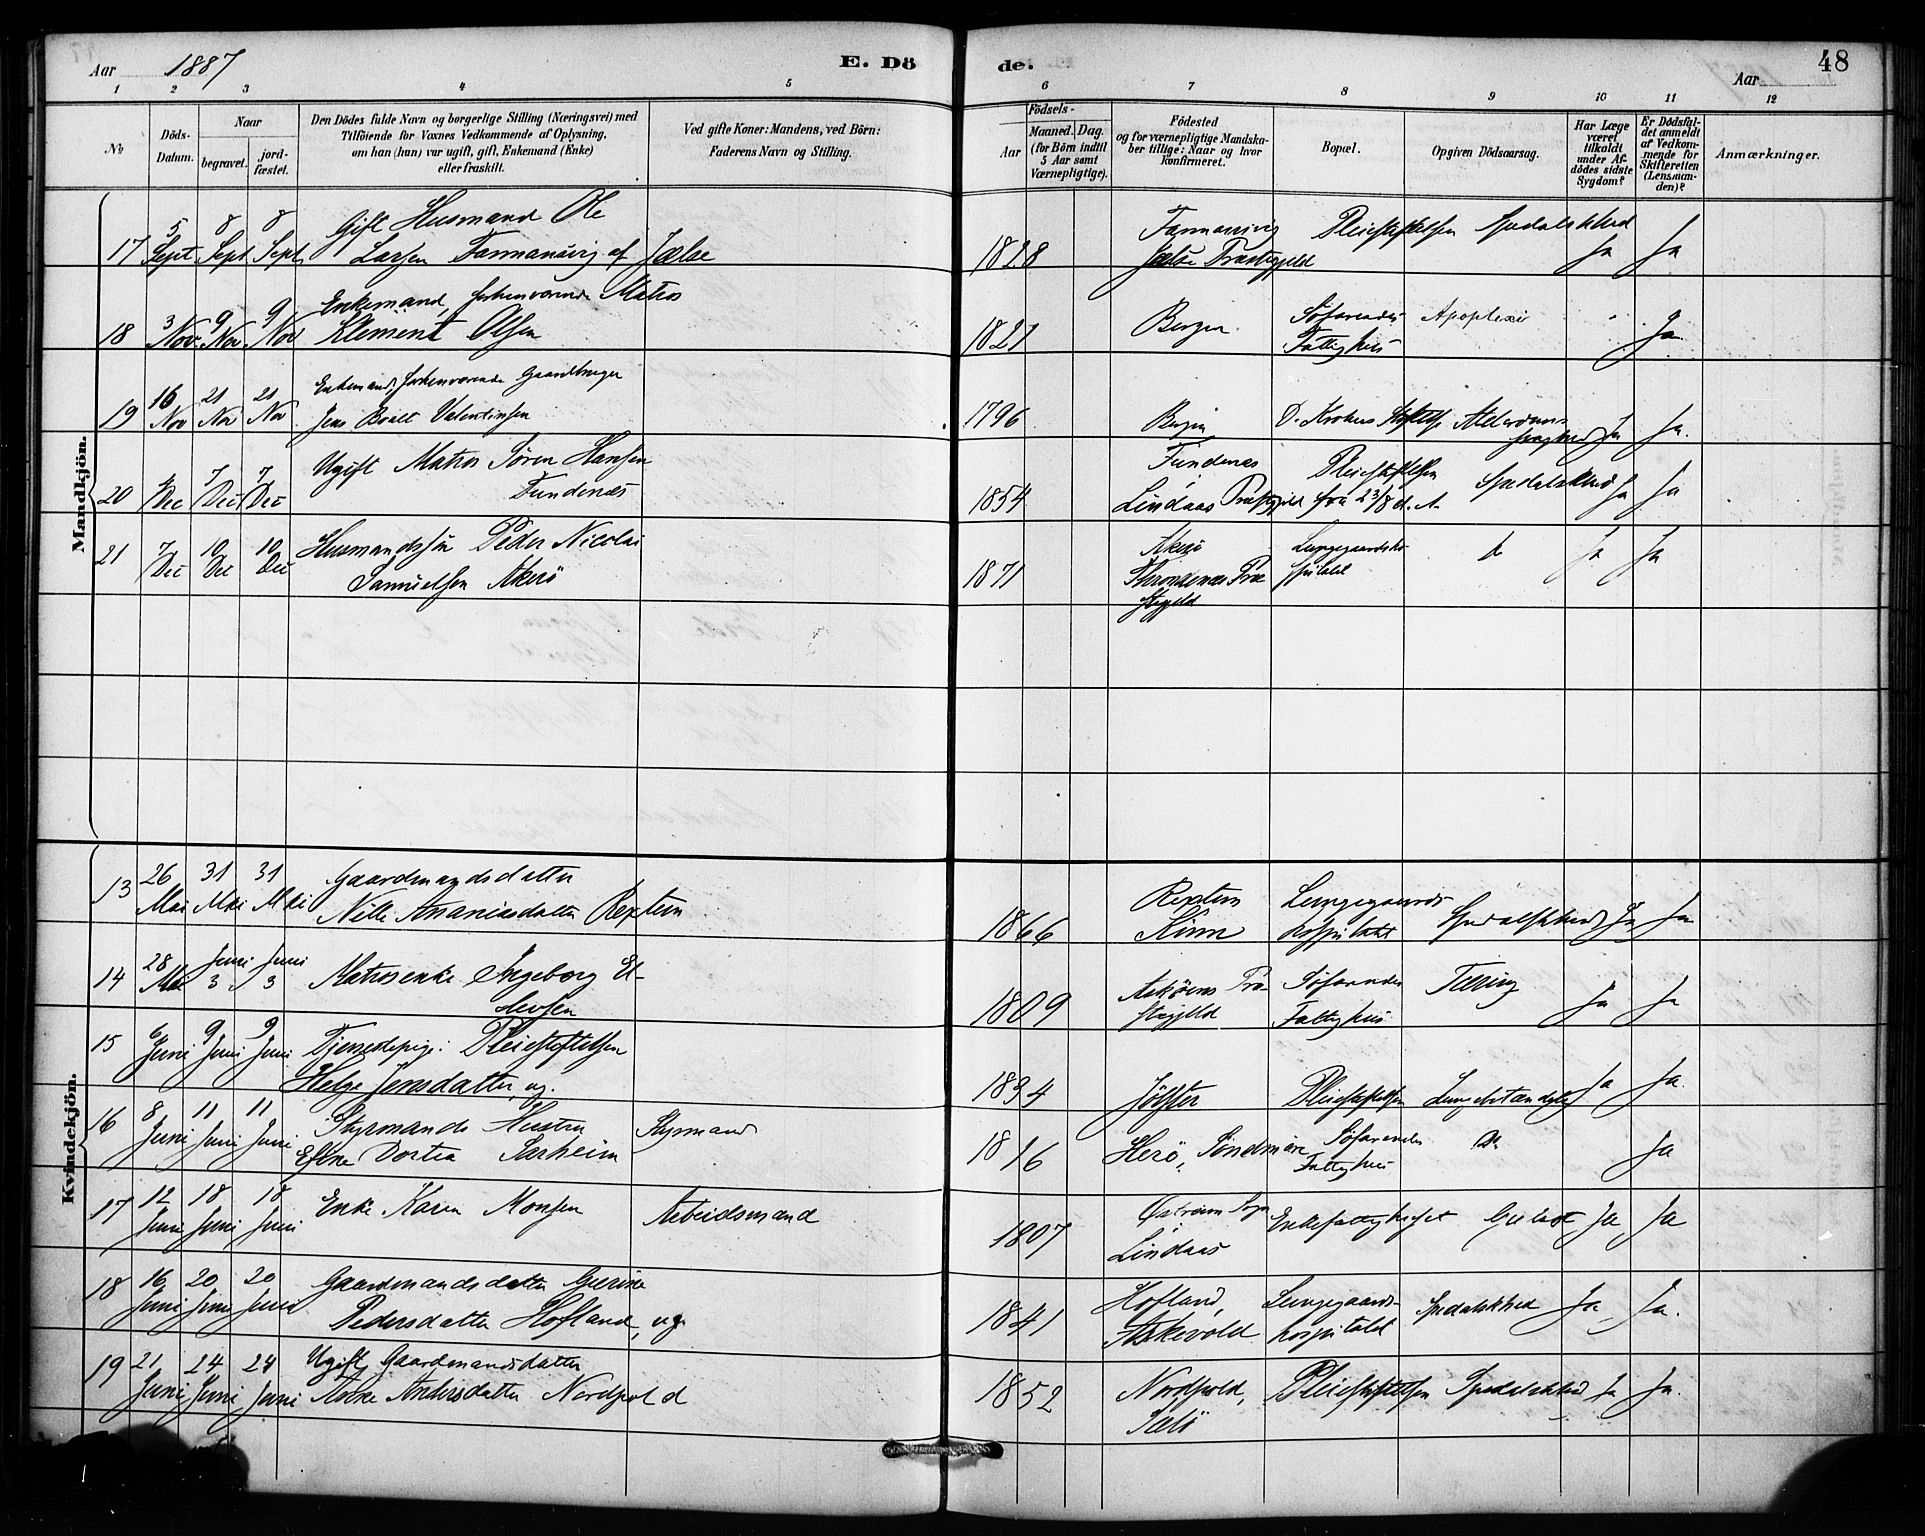 Aar 1887
E. Dö
de.
Aar
48
1 2 3 4 5 6 7 8 9 10 11 12
No
Döds-Datum.
Naar
begravet.
jord-fæstet.
Den Dödes fulde Navn og borgerlige Stilling (Næringsvei) med
Tilföiende for Voxnes Vedkommende af Oplysning,
om han (hun) var ugift, gift, Enkemand (Enke)
eller fraskilt.
Ved gifte Koner: Mandens, ved Börn:
Faderens Navn og Stilling.
Födsels-
Aar
Maaned. Dag.
(for Börn indtil
5 Aar samt
Værnepligtige).
Födested
og for værnepligtige Mandska-
ber tillige: Naar og hvor
konfirmeret.
Bopæl.
Opgiven Dödsaarsag.
Har Læge
været
tilkaldt
under Af-
dödes sidste
Sygdom?
Er Dödsfal-
det anmeldt
af Vedkom-
mende for
Skifteretten
(Lensman-
den)?
Anmærkninger.
Mandkjön.
17 5 Sept 8 Sept 8 Sept Gift Husmand Ole
Larsen Tarmansvig af Jælse 1828 Jælse Præstegjeld Pleiestiftelsen Spedalskhed Ja Ja
18 3 Nov. 9 Nov 9 Nov Enkemand, forhenværende Matros
Klement Olsen 1821 Bergen Söfarendes
Fattighus Apoplexi Ja
19 16 Nov 21 Nov 21 Nov Enkemand, forhenværende Gaardbruger
Jens Boalt Valentinsen 1796 Bergen D. Krohns Stiftelse Alderdoms
svaghed Ja Ja.
20 Dec 7 Dec 7 Dec Ugift Matros Sören Hansen
Fundenæs 1854 Fundenæs
Lindaas Præstegjeld Pleiestiftelsen
fra 23/8 d. A. Spedalskhed Ja Ja
21 7 Dec 10 Dec 10 Dec Husmandssön Peder Nicolai
Samuelsen Akerö 1871 Akerö
Præ
stegjeld Lungegaardsho
spitalet Do Ja Ja
Kvindekjön.
13 26 Mai 31 Mai 31 Mai Gaardmandsdatter
Nille Ananiasdatter Rexten 1866 Rexten
Kinn Lungegaards
hospitalet Spedalskhed Ja Ja
14 28 Mai Juni 3 Juni 3 Matrosenke Ingeborg El-
levsen 1809 Asköens Præ-
stegjeld Söfarendes
Fattighus Tæring Ja Ja
15 6 Juni 9 Juni 9 Juni Tjenestepige i Pleiestiftelsen
Helge Jensdatter, ug. 1834 Jölster Pleiestiftelsen Lungebetændelse Ja Ja.
16 8 Juni 11 Juni 11 Juni Styrmands Hustru
Dortea Styrmand 1816 Herö, Söndmöre Söfarendes
Fattighus Do Ja
17 12 Juni 18 Juni 18 Juni Enke Karen Monsen Arbeidsmand 1807 Sogn
Lindaas Enkefattighuset Ja Ja
18 16 Juni 20 Juni 20 Juni Gaardmandsdatter Gurine
Pedersdatter Hofland, ug. 1841 Hofland,
Askevold Lungegaards-
hospitalet Spedalskhed Ja Ja.
19 21 Juni 24 Juni 24 Juni Ugift Gaardmandsdatter
Anne Andersdatter Nordpold 1852 Nordpold,
Sælö Pleiestiftelsen Spedalskhed Ja Ja.